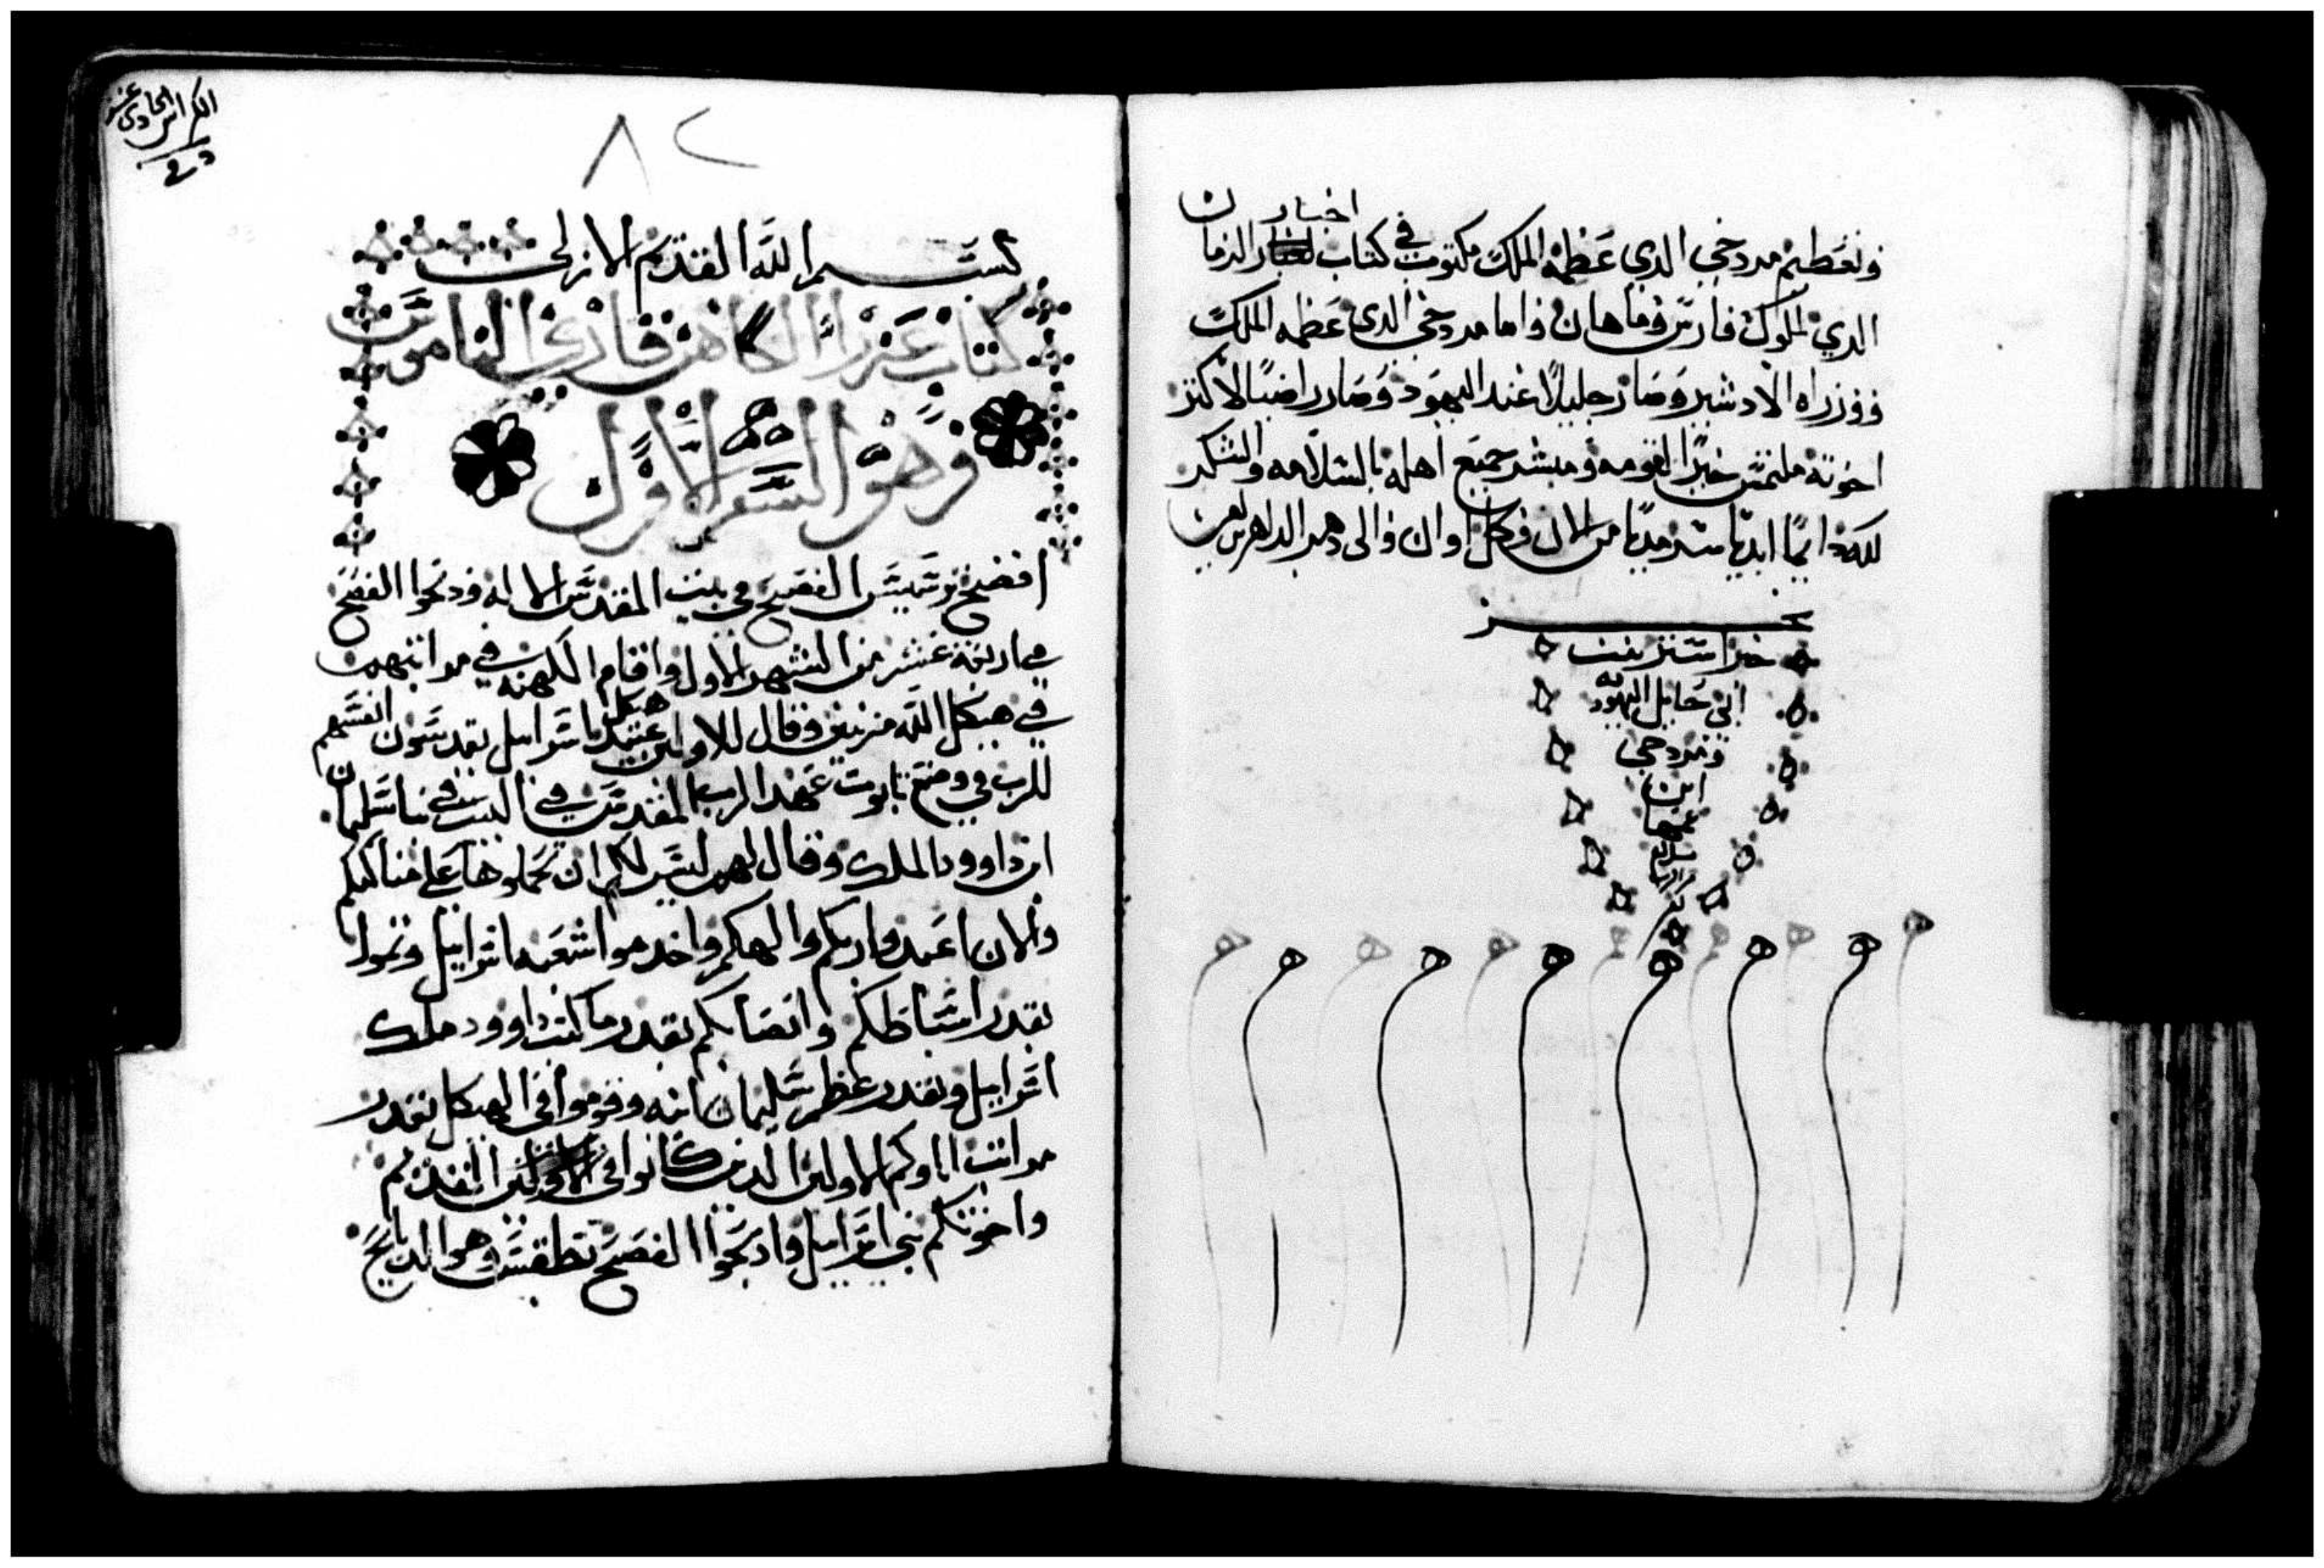 اخبار
وتعظيم مردخي الدي عظمه الملك مكتوب في كتاب الزمان
الدي لملوك فارس وماهان واما مردخي الدي عظمه الملك
ووزراه الادشير وصار جليلا عند اليهود وصار راضيا لاكثر
اخوته ملتمس خيرا لقومه ومبشر جميع اهله بالسلامه والشكر
لله دايما ابديا سرمديا من الان وكل اوان والى دهر الداهرين امين
خبر استير بنت
ابي حايل اليهوديه
ومردخي
ابن
عمها
بسلام
الكراس الحادي عشر
٨٢
بسم الله القديم الازلي
كتاب عزرا الكاهن قاري الناموس
وهو السفر الاول
افضح يوسيس الفصح في بيت المقدس لالاهه ودبحوا الفصح
في اربعة عشر من الشهر الاول واقام الكهنه في مراتبهم
في هيكل الله مزينين وقال للاولين عبيد هيكل اسراييل تقدسون انفسهم
للرب في وضع تابوت عهد الرب المقدس في البيت بناه سليمان
ابن داوود الملك وقال لهم ليس لكم ان تحملوها على مناكبكم
والان اعبدوا ربكم والهكم واخدموا شعبه اسراييل وتموا
بقدر اسباطكم وانصابكم بقدر ما كتب داوود ملك
اسراييل وبقدر عظم سليمان ابنه وقوموا في الهيكل بقدر
مراتب اباوكم الاولين الدين كانوا في الاولين القديم
واخوتكم بني اسراييل وادبحوا الفصح بطقس وهوا الدبايح